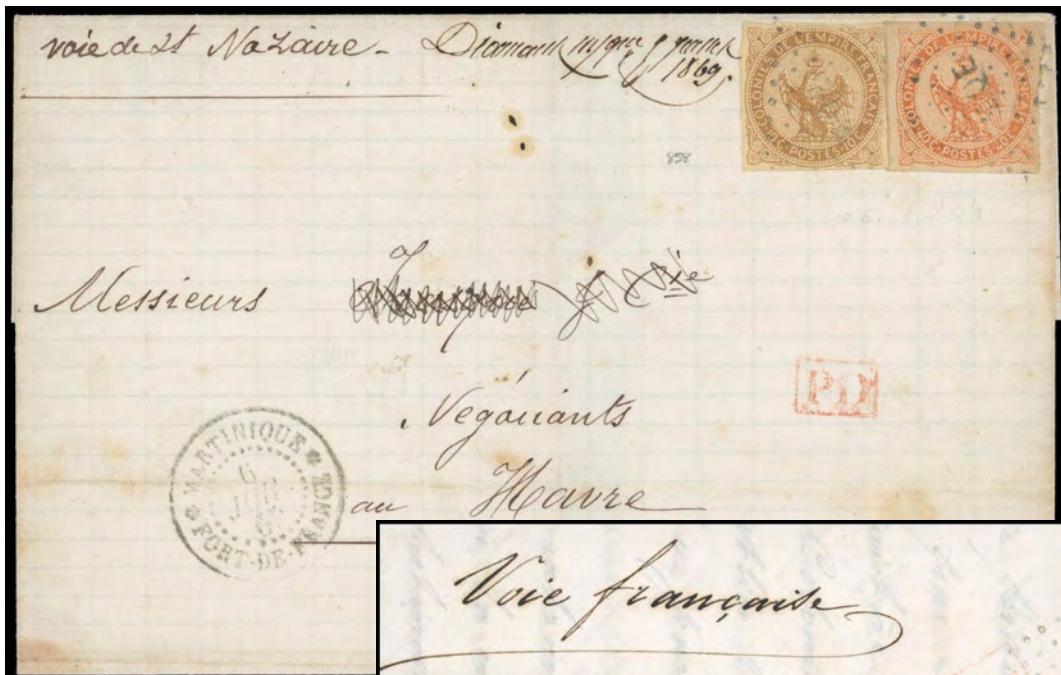 voie de St Nazaire - Diamant
1869.
COLONIES DE L'EMPIRE FRANÇAIS
10 C. POSTES. 10 C.
COLONIES DE L'EMPIRE FRANÇAIS
40 C. POSTES. 40 C.
858
Messieurs
P.D.
Négociants
MARTINIQUE
6
FORT-DE-FRANCE
au Havre
Voie française